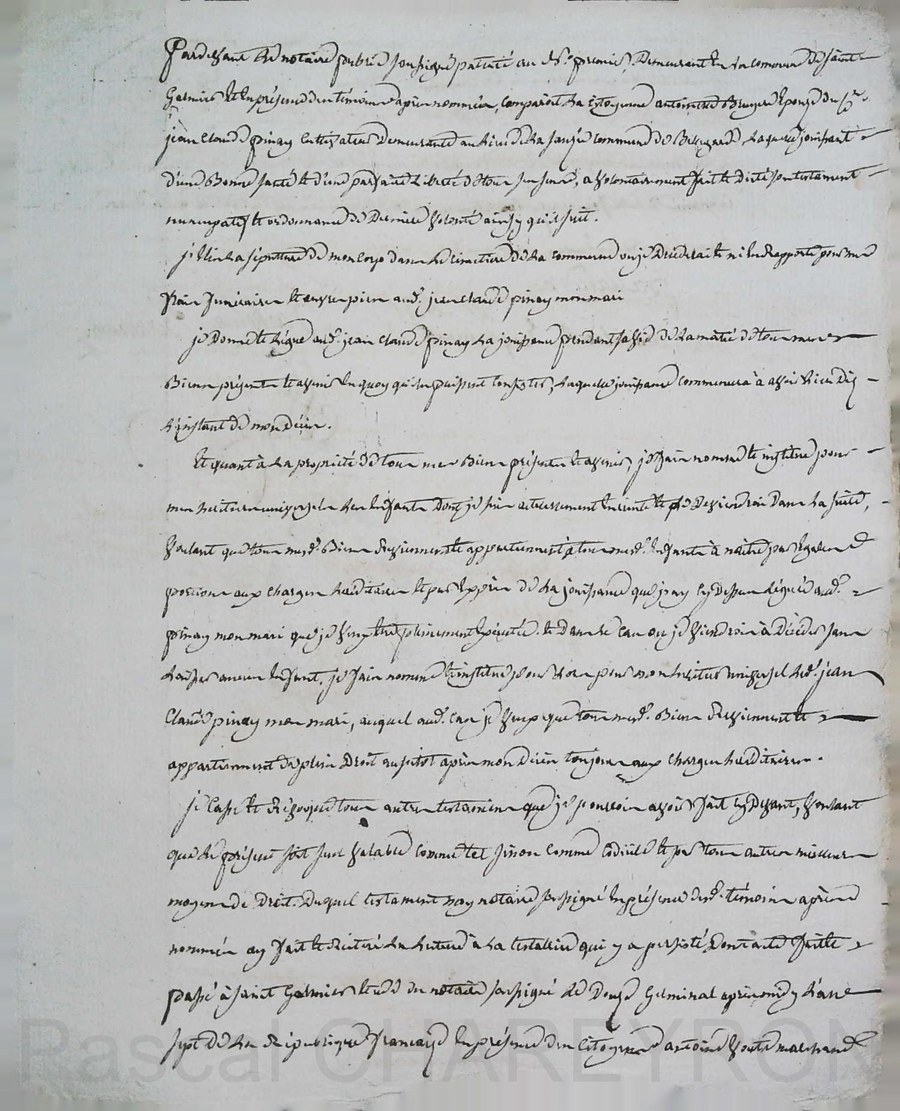 Pardevant le notaire public soussigné patenté au N.º premier, Demeurant en la commune de Saint
Galmier et en présence des témoins cy après nommés, comparoit la citoyenne antoinette Bruyere Epouse du C.en
jean Claude pinay cultivateur Demeurante au lieu de la commune de Bellegarde laquelle jouissant
d'une Bonne santé et d'une parfaite liberté de tous ses sens, a volontairement fait et dicté son testament
nuncupatif et ordonnance de Derniere volonté ainsy qu'il suit.
j'élis la sépulture de mon corps dans le cimetiere de la commune ou je Décéderai et m'en rapporte pour mes
frais funéraires et œuvres pies aud. jean Claude pinay mon mari
je Donne et Légue aud. jean Claude pinay la jouissance pendant sa vie de la moitié de tous mes
Biens présents et avenir en quoy qu'ils puissent consister, laquelle jouissance commencera à avoir lieu Dez
l'instant de mon décès.
Et quant à la propriété de tous mes Biens présents et avenir, je fais nomme et institue pour
mes héritiers universels les Enfants Dont je suis actuellement Enceinte et De Deviendrai Dans la suite,
voulant que tous mesd. Biens Reviennent et appartiennent à tous mesd. Enfants à naitre par Egales
portions aux charges héréditaires et par Exprès de la jouissance que j'ay cy Dessus léguée aud.
pinay mon mari que je veux Etre pleinement Exécutée. Et Dans le cas ou je viendrois à Décéder sans
laisser aucun Enfant, je fais nomme et institue pour mon héritier universel led. jean
Claude pinay mon mari, auquel aud. cas je veux que tous mesd. Biens Reviennent et
appartiennent de plein Droit aussitot après mon Décès toujours aux charges héréditaires.
je Casse et Révoque tous autres testaments que je pourrois avoir fait cy Devant, voulant
que le présent soit seul valable comme tel sinon comme codicile et par tous autres meilleurs
moyens de Droit. Duquel testament moy notaire soussigné en présence desd. témoins après
nommés ay fait et Réitéré la lecture à la testatrice qui y a persisté, Dont acte fait et
passé à Saint Galmier Etude du notaire soussigné le Douze Germinal après midy l'an
sept de la République française En présence des citoyens antoine marchand
Pascal CHAREYRON